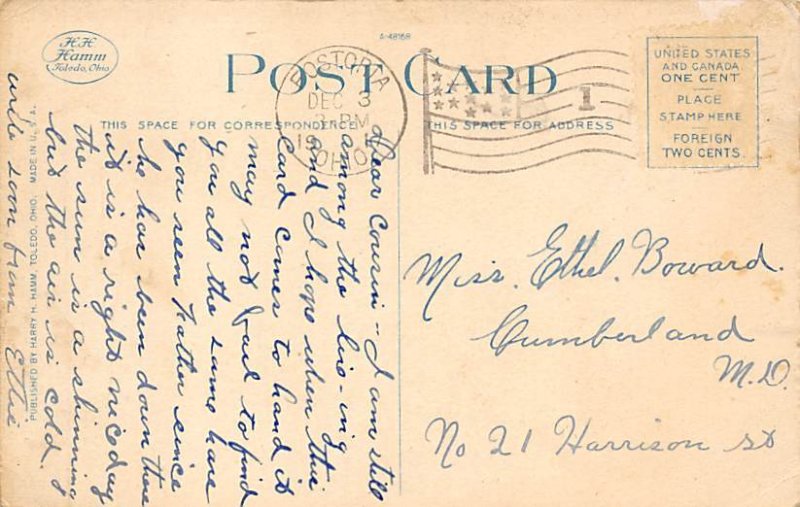 A-48168
H.H.
Hamm
Toledo, Ohio
POST CARD
FOSTORIA
DEC 3
PM
19
OHIO
1
UNITED STATES
AND CANADA
ONE CENT
PLACE
STAMP HERE
FOREIGN
TWO CENTS.
THIS SPACE FOR CORRESPONDENCE
THIS SPACE FOR ADDRESS
Dear Cousin - I am still
among the live-ing
and I hope when this
Card comes to hand it
may not fail to find
you all the same have
you seen Father since
he has been down there
it is a right nice day
the sun is a shinning
but the air is cold.
write soon from Ettie
Miss. Ethel. Boward.
Cumberland
M.D.
No 21 Harrison st
PUBLISHED BY HARRY H. HAMM, TOLEDO, OHIO. MADE IN U.S.A.